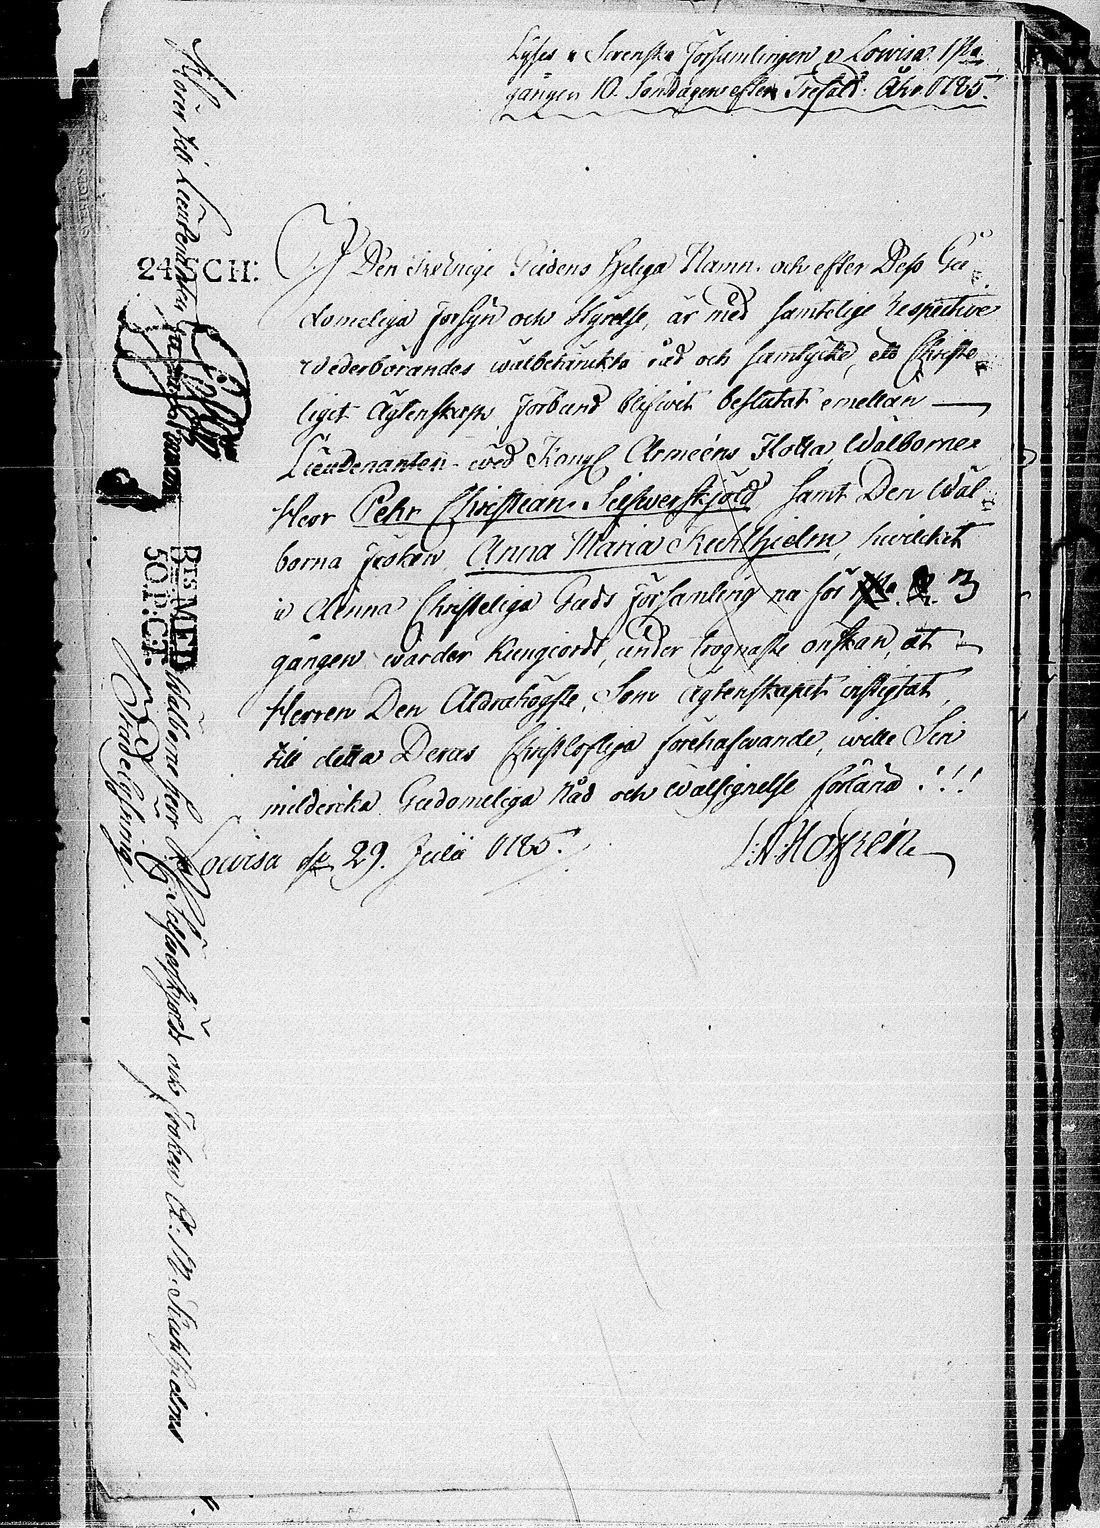 Lyses i Svenska Församlingen i Lowisa 1sta
gången 10. Söndagen efter Trefald: Åhr 1785.
I Den Treenige Gudens Helega Namn och efter Dess Gu-
domeliga försyn och Styrelse, är med samtelige respective
wederbörandes wälbetänckta råd och samtycke, ett Christe-
liget Ägtenskaps förbund blifwit beslutat emellan
Lieutenanten wid Kongl Arméens Flotta, Wälborne
Herr Pehr Christian Silfwerskjöld samt Den Wäl-
borna fröken, Anna Maria Stahlhielm, hwilcket
i denna Christeliga Guds församling nu för 3
gången warder kungiordt, under trognaste önskan, at
Herren Den Aldrahögste, Som Ägtenskapet instigtat,
till detta Deras Christlofliga förehafwande, wille Sin
milderika Gudomeliga Nåd och wälsignelse förläna !!!
Lowisa d. 29. Julii 1785.
24 SCH:
BtS MED
50. P: Ct.
Lieutenanten
Wälborne herr P. C: Silfwerskjöld och fröken A: M: Stahlhielms